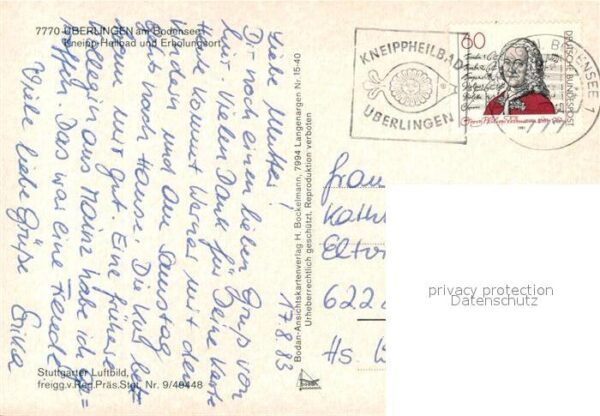 7770 ÜBERLINGEN am Bodensee
Kneipp-Heilbad und Erholungsort
17.8.83
Liebe Mutter!
Dir noch einen lieben Gruß von
hier. Vielen Dank für Deine Karte
Heute kommt Werner mit den
Kindern und am Samstag
nach Hause. Die Kur bekommt
mir gut. Eine frühere
Kollegin aus Mainz habe ich ge-
troffen. Das war eine Freude
Viele liebe Grüße Erika
Stuttgarter Luftbild,
freigg.v.Reg.Präs.Stgt. Nr. 9/40448
Bodan-Ansichtskartenverlag H. Bockelmann, 7994 Langenargen Nr. 15-40
Urheberrechtlich geschützt, Reproduktion verboten
KNEIPPHEILBAD
ÜBERLINGEN
60
DEUTSCHE BUNDESPOST
BODENSEE 1
Frau
Kath
Eltv
622
Hs.
privacy protection
Datenschutz